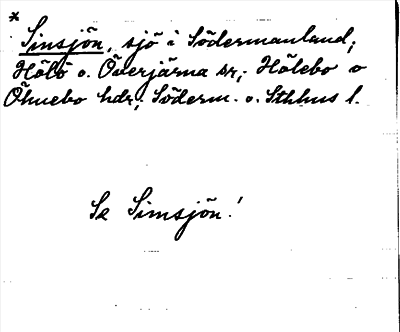 *
Sinsjön, sjö i Södermanland;
Hölö o. Överjärna sr; Hölebo o
Öknebo hdr; Söderm. o. Sthlms l.
Se Simsjön!